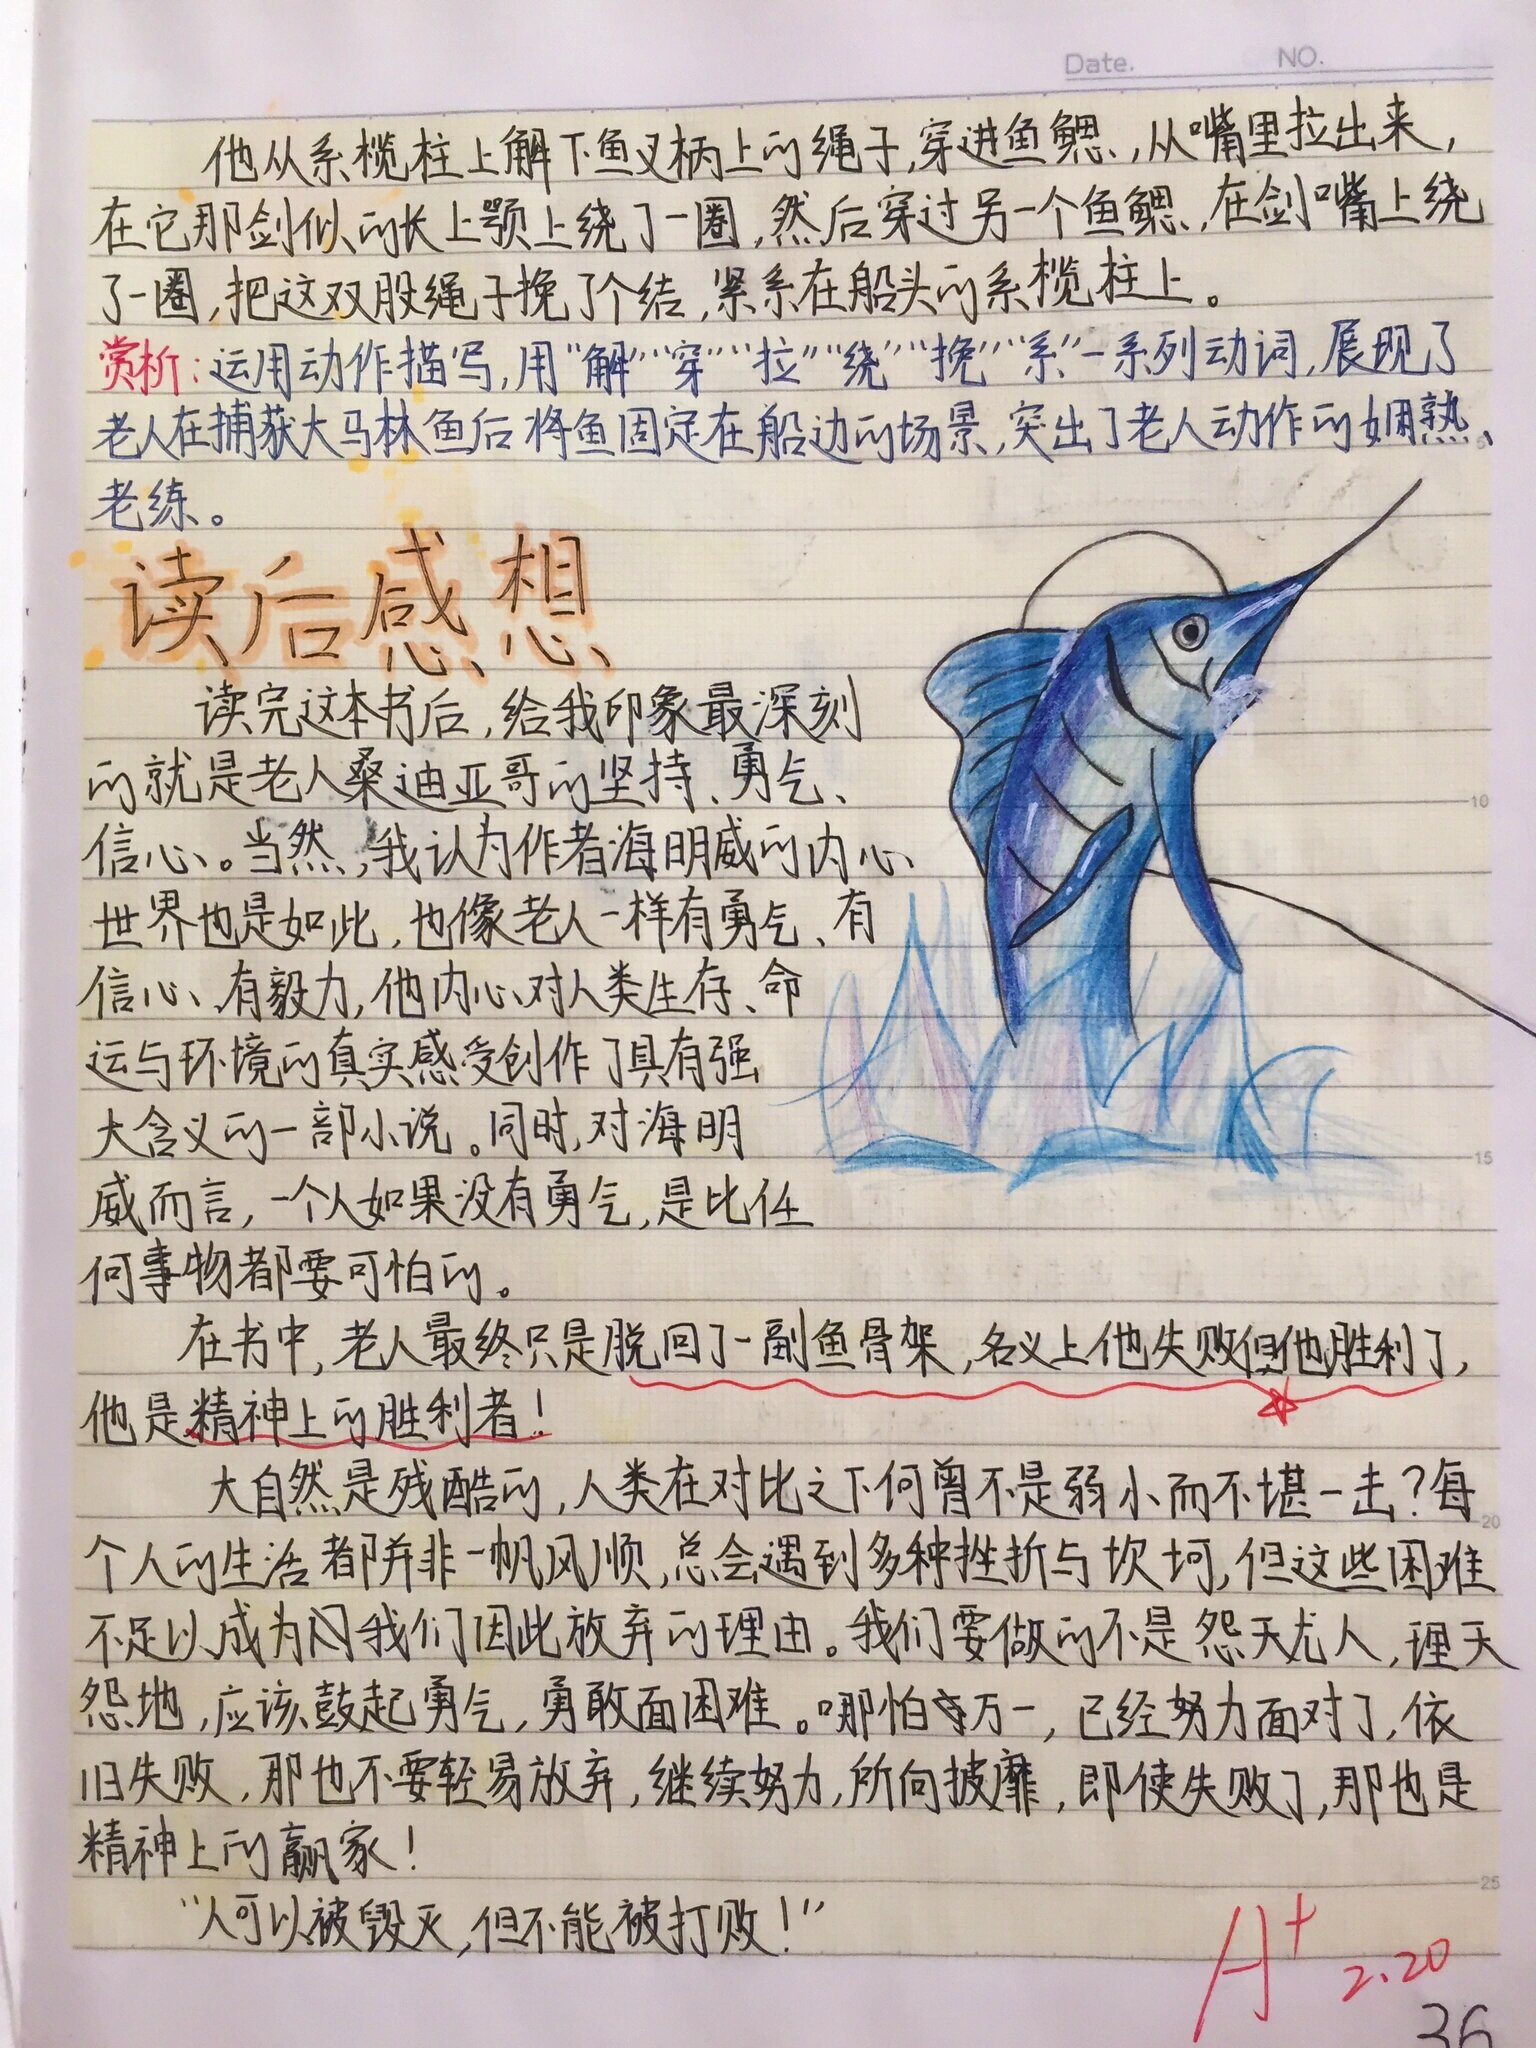 Date. NO.
他从系缆柱上解下鱼叉柄上的绳子,穿进鱼鳃,从嘴里拉出来,
在它那剑似的长上颚上绕了一圈,然后穿过另一个鱼鳃,在剑嘴上绕
了一圈,把这双股绳子挽了个结,紧系在船头的系缆柱上。
赏析:运用动作描写,用“解”“穿”“拉”“绕”“挽”“系”一系列动词,展现了
老人在捕获大马林鱼后将鱼固定在船边的场景,突出了老人动作的娴熟、
老练。
读后感想
读完这本书后,给我印象最深刻
的就是老人桑迪亚哥的坚持、勇气、
信心。当然,我认为作者海明威的内心
世界也是如此,也像老人一样有勇气、有
信心、有毅力,他内心对人类生存、命
运与环境的真实感受创作了具有强
大含义的一部小说。同时,对海明
威而言,一个人如果没有勇气,是比任
何事物都要可怕的。
在书中,老人最终只是脱回了一副鱼骨架,名义上他失败但他胜利了,
他是精神上的胜利者!
大自然是残酷的,人类在对比之下何曾不是弱小而不堪一击?每
个人的生活都并非一帆风顺,总会遇到多种挫折与坎坷,但这些困难
不足以成为我们因此放弃的理由。我们要做的不是怨天尤人,埋天
怨地,应该鼓起勇气,勇敢面困难。哪怕万一,已经努力面对了,依
旧失败,那也不要轻易放弃,继续努力,所向披靡,即使失败了,那也是
精神上的赢家!
“人可以被毁灭,但不能被打败!”
A+ 2.20
36
10
15
20
25